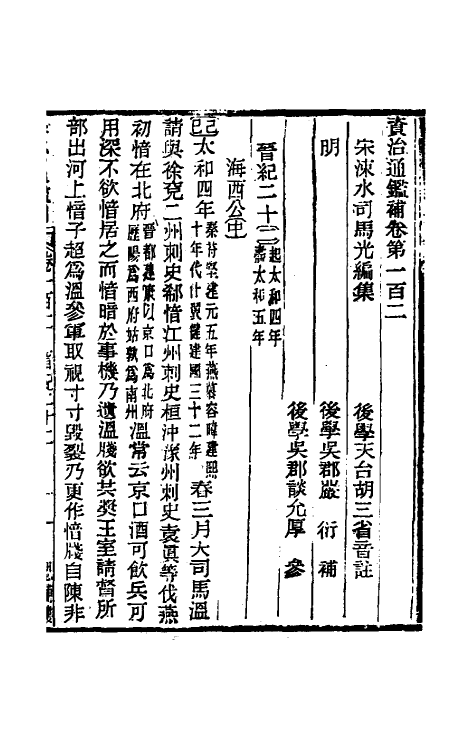 資治通鑑補卷第一百二
宋涑水司馬光編集
後學天台胡三省音註
明
後學吳郡嚴衍補
後學吳郡談允厚參
晉紀二十四起太和四年盡太和五年
海西公中
己巳太和四年秦苻堅建元五年燕慕容暐建熙十年代什翼犍建國三十二年春三月大司馬溫
請與徐兗二州刺史郗愔江州刺史桓沖豫州刺史袁真等伐燕
初愔在北府晉都建康以京口爲北府歷陽爲西府姑孰爲南州溫常云京口酒可飲兵可
用深不欲愔居之而愔暗於事機乃遺溫牋欲共奬王室請督所
部出河上愔子超爲溫參軍取視寸寸毀裂乃更作愔牋自陳非